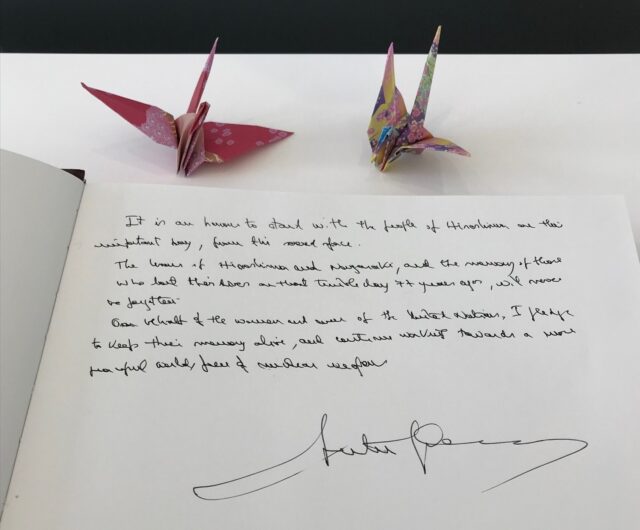 It is an honour to stand with the people of Hiroshima on this
important day, from this sacred place.
The horrors of Hiroshima and Nagasaki, and the memory of those
who lost their lives on that terrible day 77 years ago, will never
be forgotten
On behalf of the women and men of the United Nations, I pledge
to keep their memory alive, and continue working towards a more
peaceful world, free of nuclear weapons